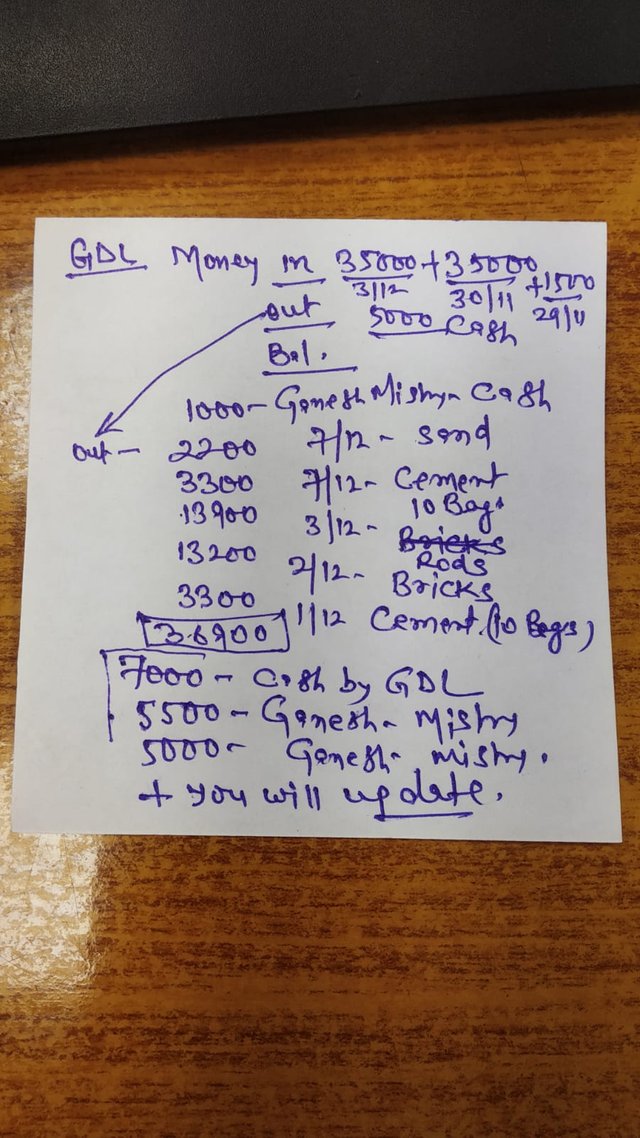 GDL Money in 35000 + 35000 + 1500
3/12 30/11 29/11
out 5000 Cash
Bal.
1000 - Ganesh Mistry - Cash
out - 2200 7/12 - Sand
3300 7/12 - Cement
10 Bags
13900 3/12 - Bricks
Rods
13200 2/12 - Bricks
3300 1/12 Cement. (10 Bags)
36900
7000 - Cash by GDL
5500 - Ganesh - Mistry
5000 - Ganesh - Mistry.
+ you will update.